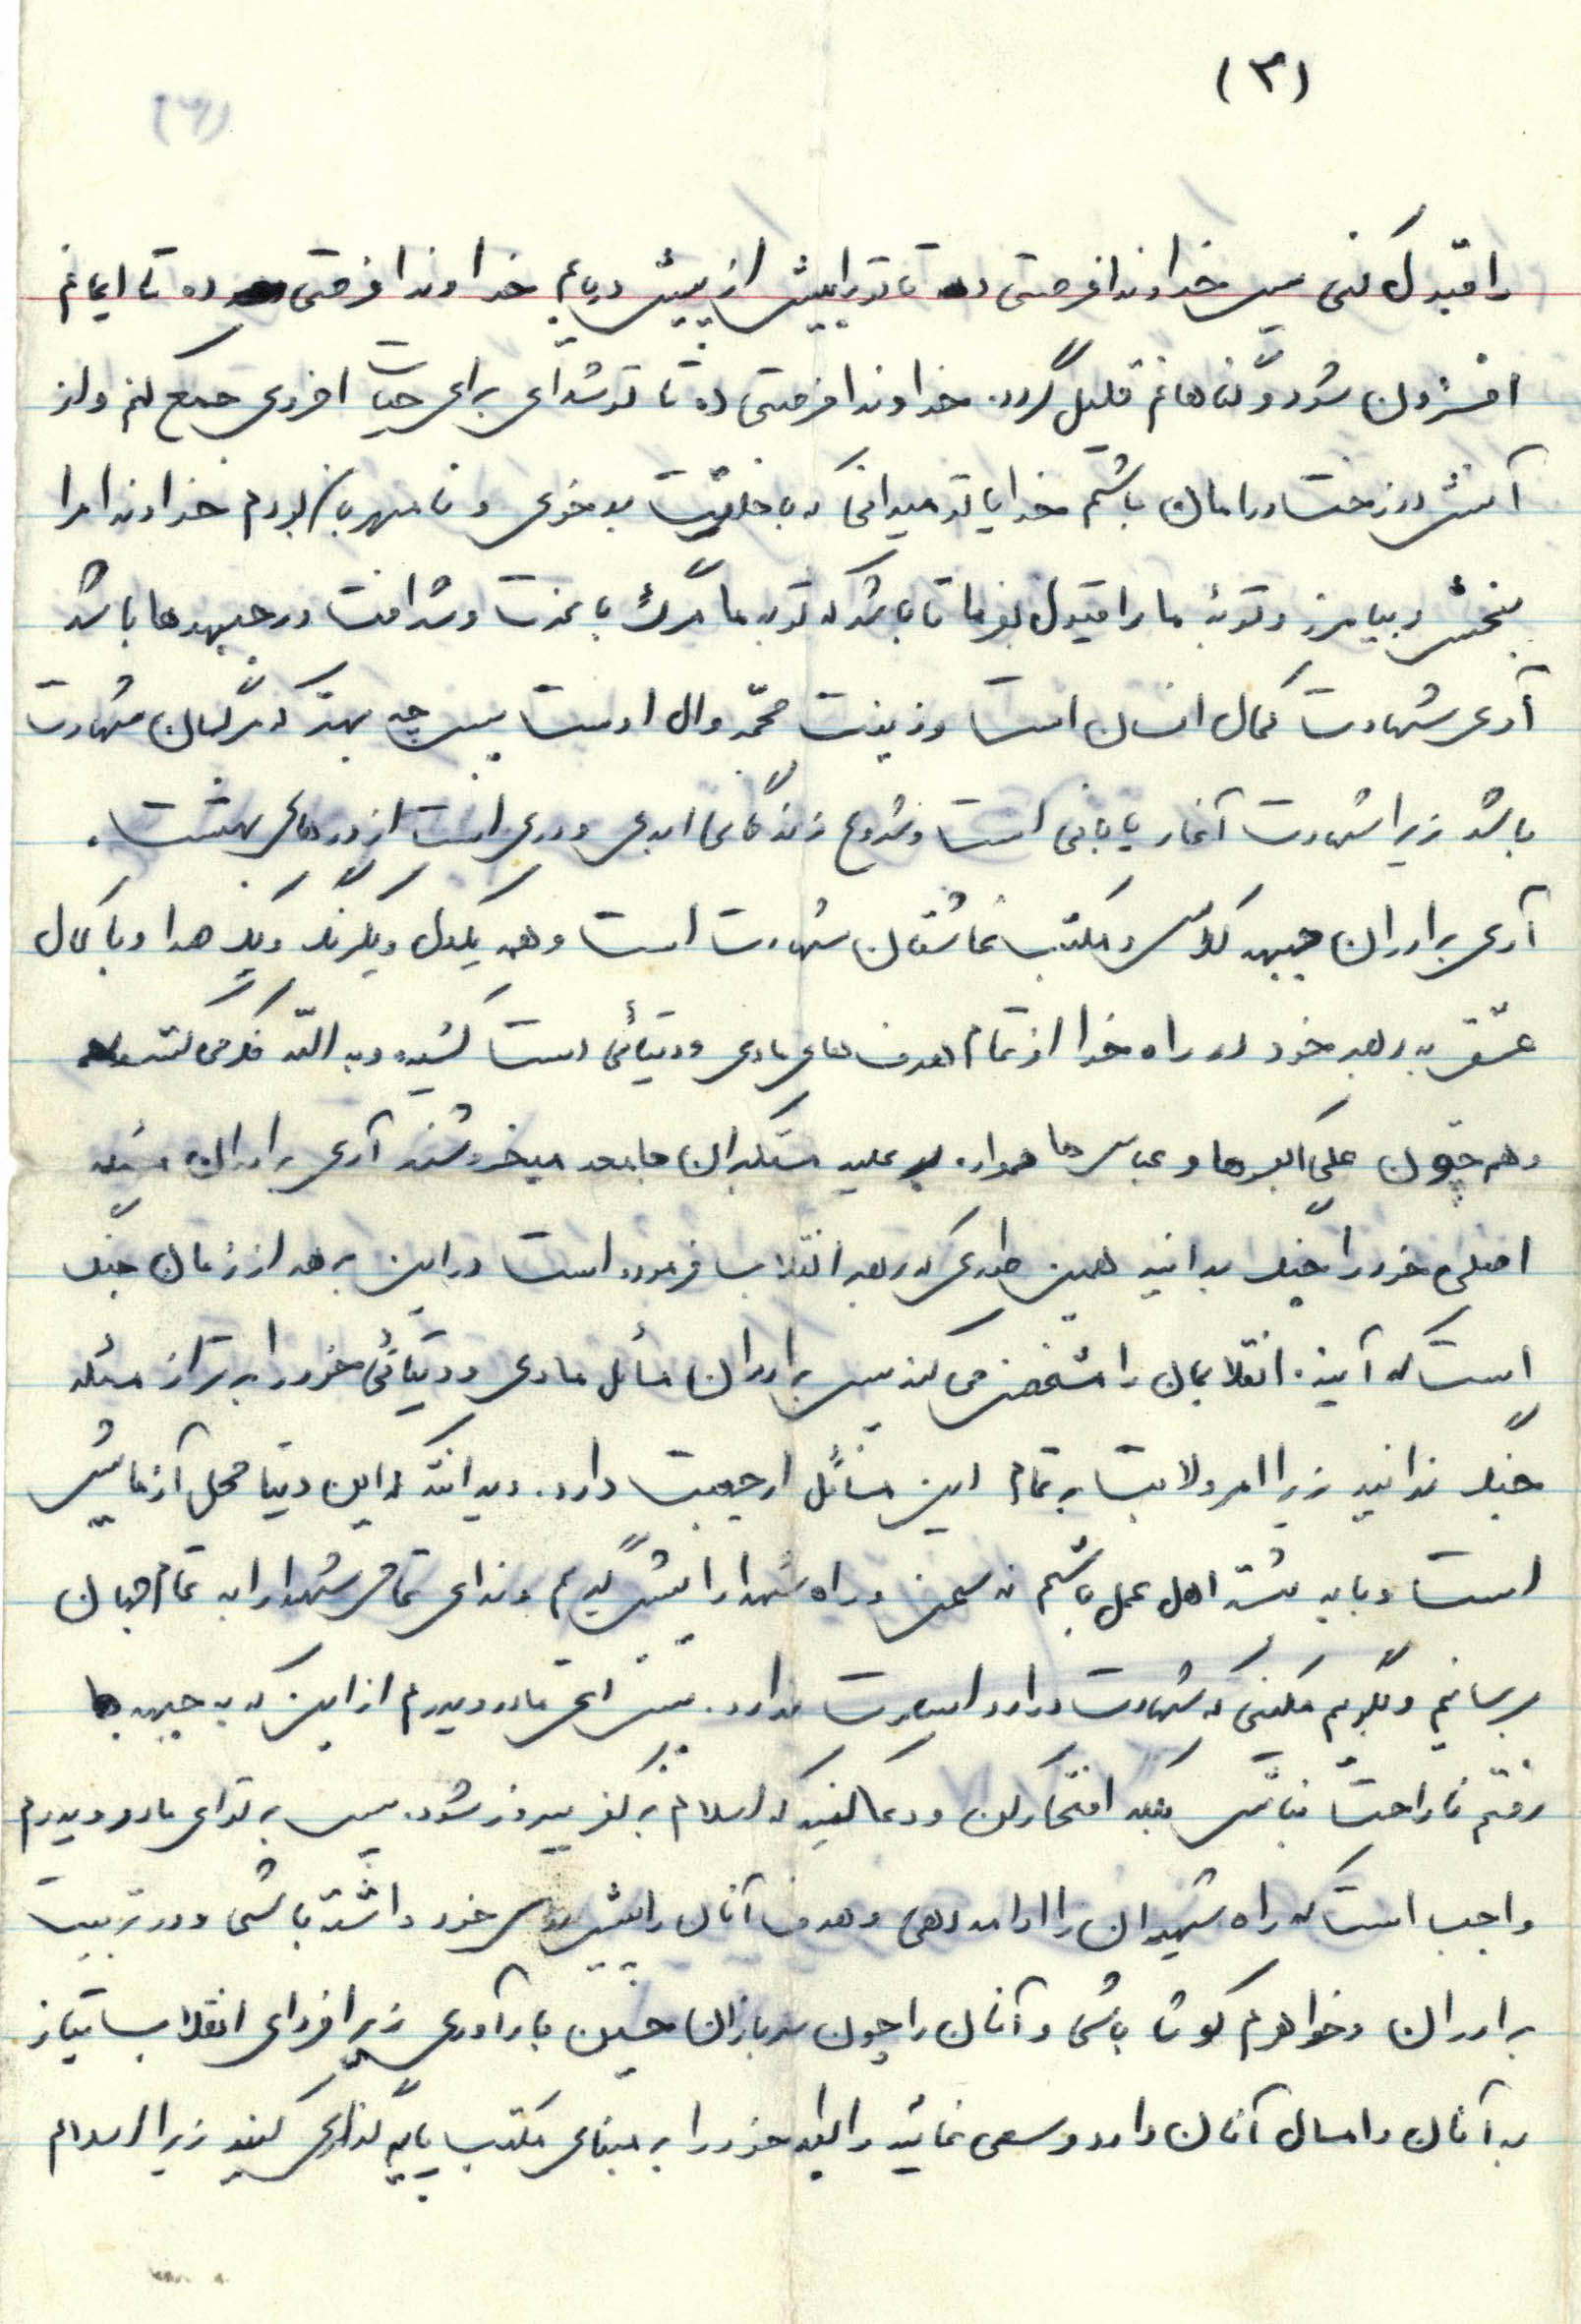 (۳)
را قبول کنی پس خداوندا فرصتی ده تا تو را بیش از پیش دریابم خداوندا فرصتی ده تا ایمانم
افزون شود و گناهانم قلیل گردد. خداوندا فرصتی ده تا توشه‌ای برای حیات اخروی جمع کنم و از
آتش دوزخت در امان باشم خدایا تو میدانی که با خلقیت بدخوی و نامهربان بودم خداوندا مرا
ببخش و بیامرز و توبهٔ ما را قبول بفرما تا باشد که توبه ما مرگ با عزت و شرافت در جبهه‌ها باشد
آری شهادت کمال انسان است و زینت محمّد و ال اوست پس چه بهتر که مرگمان شهادت
باشد زیرا شهادت آغاز پایانی است و شروع زندگانی ابدی و دری است از درهای بهشت.
آری برادران جبهه کلاس و مکتب عاشقان شهادت است و همه یکدل و یکرنگ و یکصدا و با کمال
عشق به رهبر خود در راه خدا از تمام هدف‌های مادی و دنیائی دست کشیده و به اللّه فکر می‌کنند
و هم چون علی اکبرها و عباس‌ها همواره بر علیه مستکبران جامعه میخروشند آری برادران مسئله
اصلی خود را جنگ بدانید همین طوری که رهبر انقلاب فرموده است در این برهه از زمان جنگ
است که آینده انقلابمان را مشخص می‌کند پس برادران مسائل مادی و دنیائی خود را برتر از مسئله
جنگ ندانید زیرا امر ولایت به تمام این مسائل ارجعیت دارد. و بدانید که این دنیا محل آزمایش
است و باید همیشه اهل عمل باشیم نه سخن و راه شهدا را پیش گیریم و ندای تمامی شهدا را به تمام جهان
برسانیم و بگوئیم مکتبی که شهادت دارد اسارت ندارد. پس ای مادر و پدرم از این که به جبهه‌ها
رفتم ناراحت نباش بلکه افتخار کن و دعا کنید که اسلام بر کفر پیروز شود. پس بر تو ای مادر و پدرم
واجب است که راه شهیدان را ادامه دهی و هدف آنان را پیش روی خود داشته باشی و در تربیت
برادران و خواهرم کوشا باشی و آنان را چون سربازان حسین بار آوری زیرا فردای انقلاب نیاز
به آنان و امسال آنان دارد و سعی نمائید روابط خود را بر مبنای مکتب پایه گذاری کنید زیرا اسلام